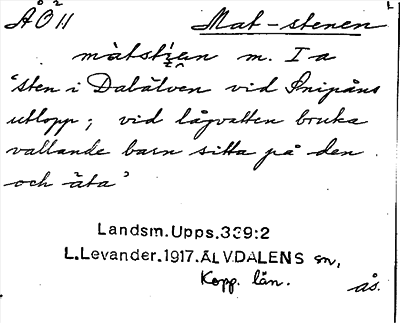 ÅÖ²11 Mat-stenen
màtstı̯en m. I-a
'sten i Dalälven vid Snipåns
utlopp; vid lågvatten bruka
vallande barn sitta på den
och äta'
Landsm.Upps.339:2
L.Levander.1917.ÄLVDALENS sn,
Kopp. län.
ås.